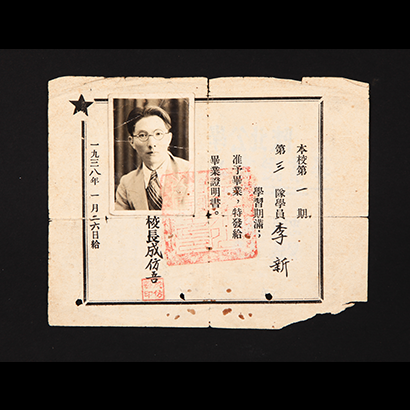 本校第一期
第三隊學員李新
學習期滿；
准予畢業，特發給
畢業證明書。
校長成仿吾
一九三八年一月二六日給